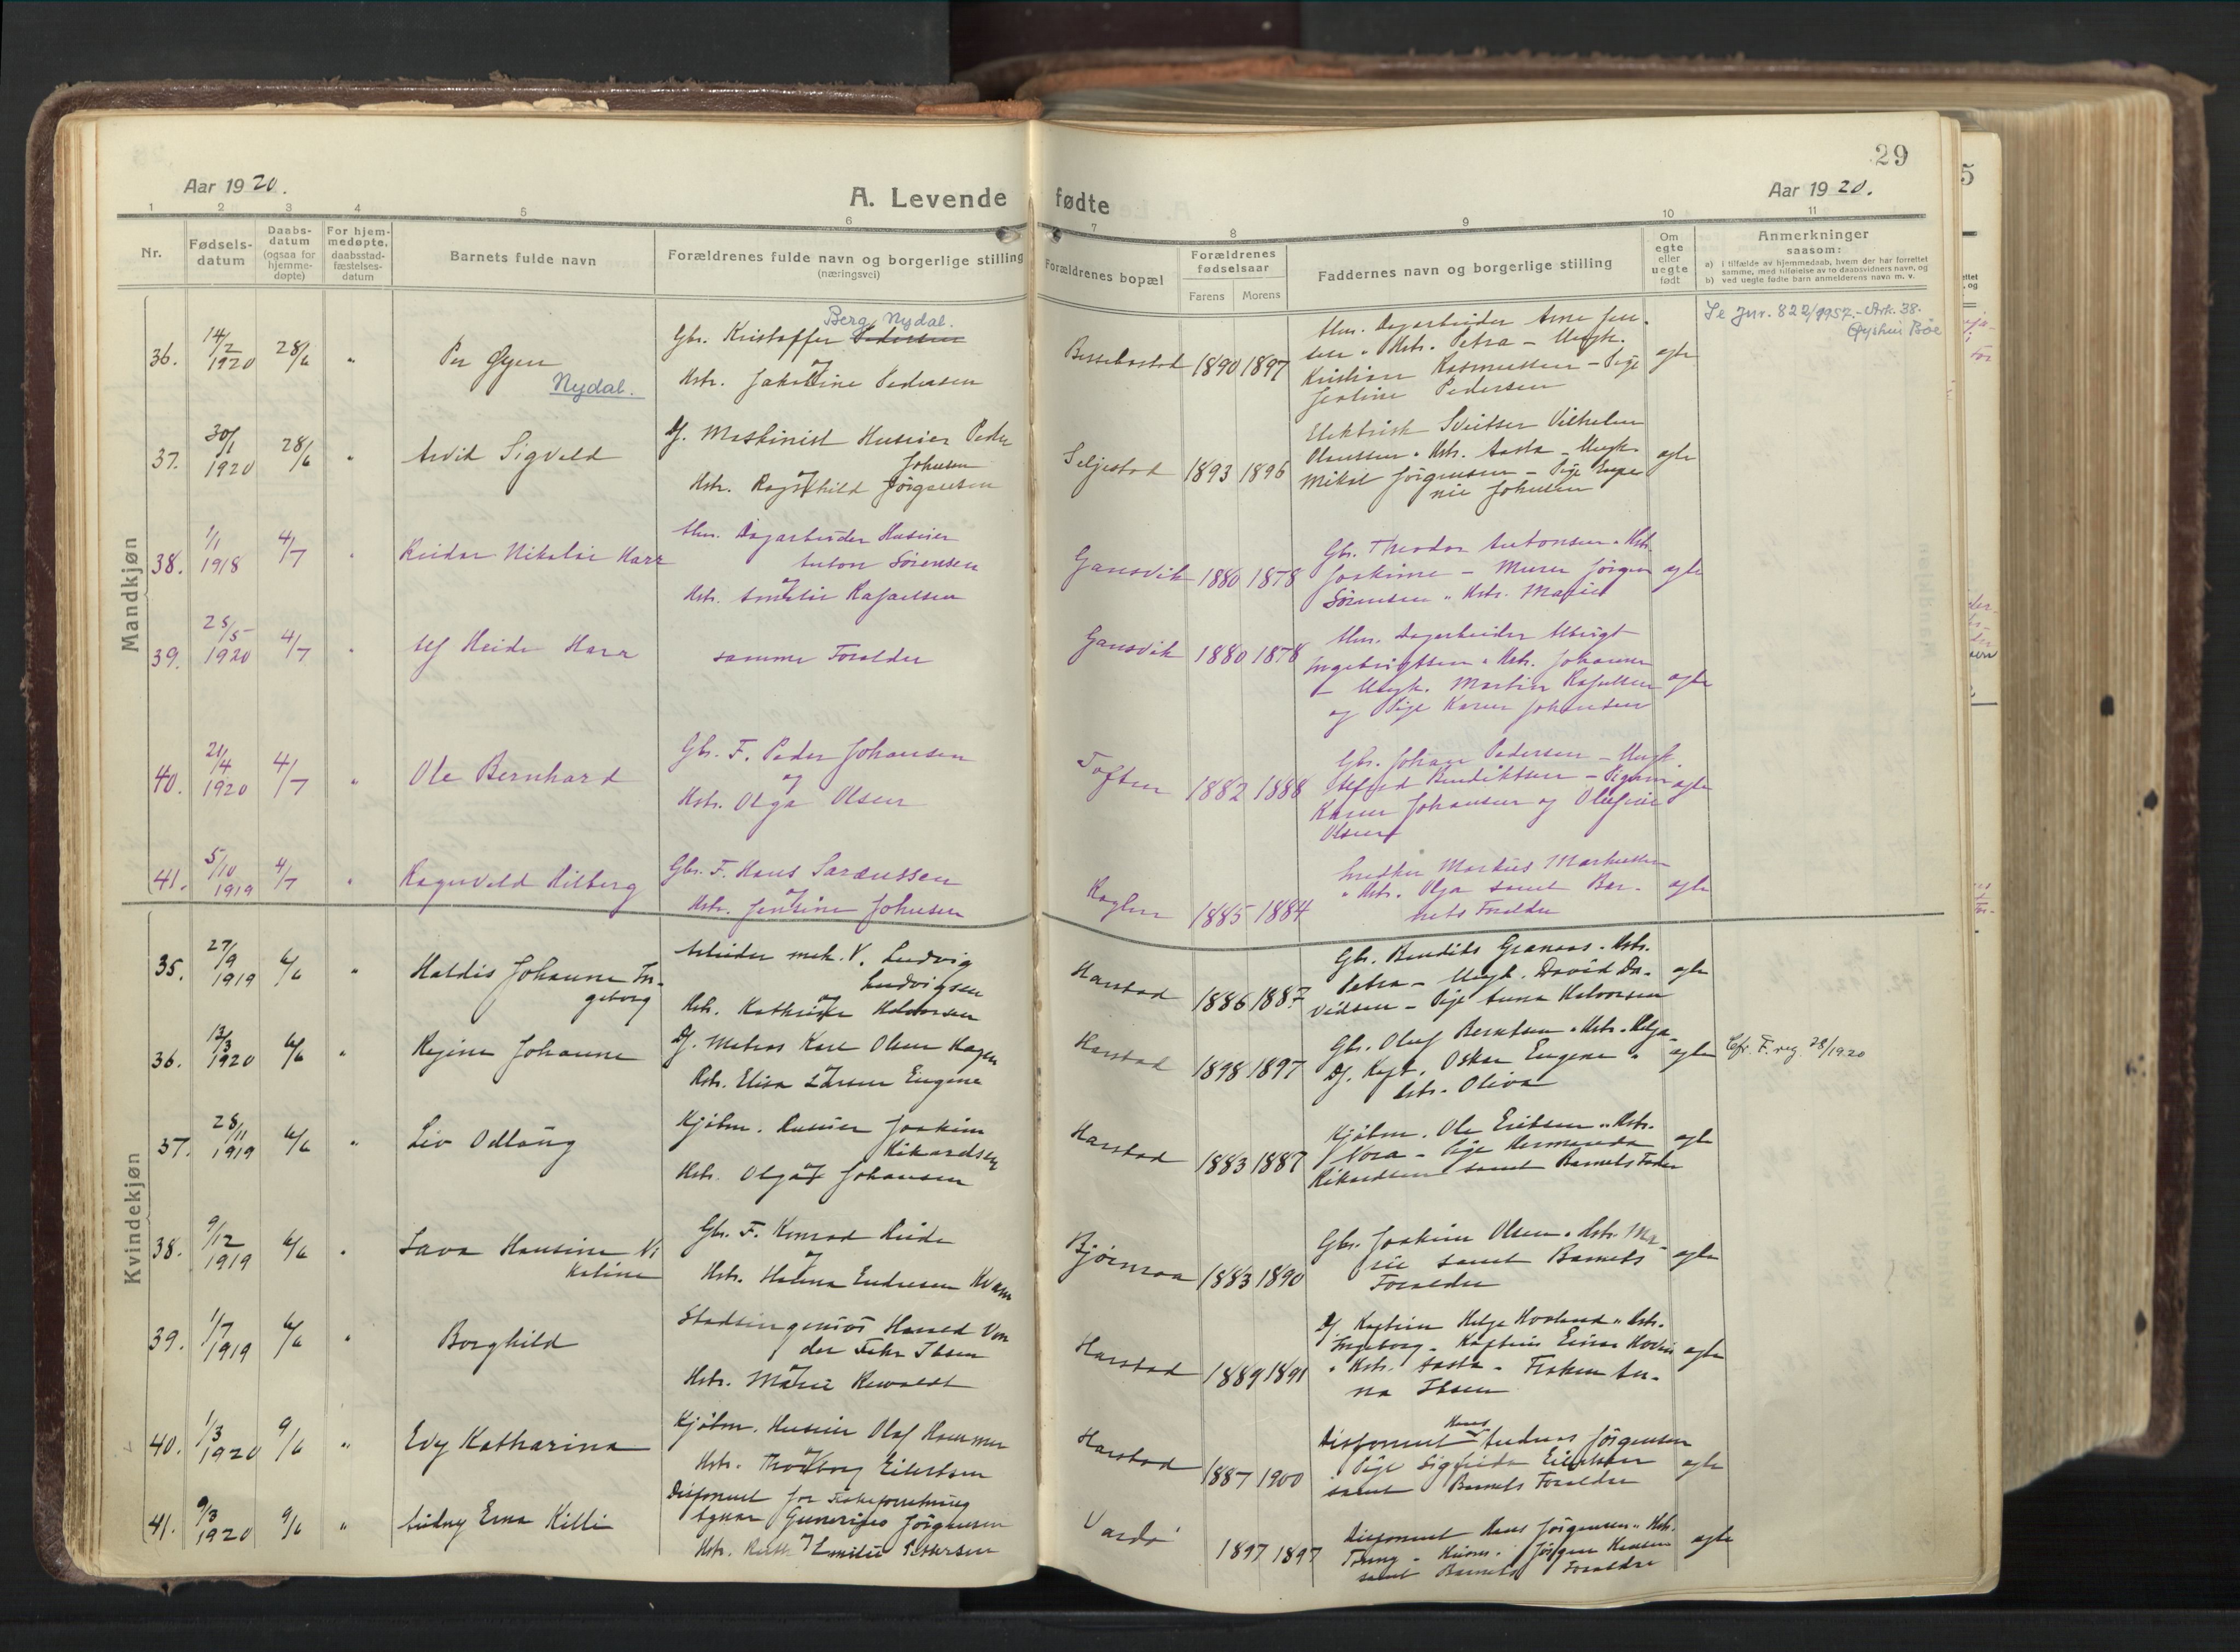 29
Aar 1920.
A. Levende fødte
Aar 1920.
1 2 3 4 5 6 7 8 9 10 11
Nr.
Fødsels-
datum
Daabs-
datum
(ogsaa for
hjemme-
døpte)
For hjem-
medøpte,
daabsstad-
fæstelses-
datum
Barnets fulde navn
Forældrenes fulde navn og borgerlige stilling
(næringsvei)
Forældrenes bopæl
Forældrenes
fødselsaar
Farens Morens
Faddernes navn og borgerlige stilling
Om
egte
eller
uegte
født
Anmerkninger
saasom:
a) i tilfælde av hjemmedaab, hvem der har forrettet
samme, med tilføielse av to daabsvidners navn, og
b) ved uegte fødte barn anmelderens navn m. v.
Mandkjøn
36. 14/2 1920 28/6 " Per Øyen
Nydal.
Berg Nydal.
Gbr. Kristoffer Pedersen
og
Hstr. Pedersen
1890 1897
Arne Jen-
sen " Hstr. Petra - Ungk.
Kristian Rasmussen - Pige
Pedersen
egte
Se Jnr. 822/1957. - Ark. 38.
37. 30/1 1920 28/6 " Arvid Sigveld
Maskinist Huseier Peder
Johnsen
og
Hstr. Ragnhild Jørgensen
Seljestad 1893 1896
Elektrisk Vilhelm
Hstr. Aasta - Ungk.
Mikal Jørgensen - Pige Euge
nie Johnsen
egte
38. 1/1 1918 4/7 " Reidar Nikolai Harr
Hmd. Dagarbeider Huseier
Anton Sørensen
og
Hstr. Amalie Rafaelsen
Gansvik 1880 1878
Gbr. Theodor Antonsen " Hstr.
Joakime - Murer Jørgen
Sørensen " Hstr. Marie
egte
39. 25/5 1920 4/7 " Alf Heide Harr
samme Forældre
Gansvik 1880 1878
Dagarbeider
Ingebrigtsen " Hstr. Johanne
- Ungk. Martin Rafaelsen
og Pige Karen Johansen
egte
40. 21/4 1920 4/7 " Ole Bernhard
Gbr. F. Peder Johansen
og
Hstr. Olga Olsen
Toften 1882 1888
Gbr. Johan Pedersen - Ungk.
Alfred Bendiktsen - Pigerne
Karen Johansen og Olufine
Olsen
egte
41. 5/10 1919 4/7 " Ragnvald Hilberg
Gbr. F. Hans
og
Hstr. Jensine Johnsen
1885 1884
Snedker Markus Markussen
" Hstr. Olga samt Bar-
nets Forældre
egte
Kvindekjøn
35. 27/9 1919 6/6 " Haldis Johanne In-
geborg
Arbeider mek. V. Ludvig
Ludvigsen
og
Hstr. Kathrine Halvorsen
Harstad 1886 1887
Gbr. Bendiks Granaas " Hstr.
Petra - Ungk. David Da-
vidsen - Pige Anna Halvorsen
egte
36. 13/3 1920 6/6 " Regine Johanne
Matros Karl Olsen Hagen
Hstr. Elisa Larsen Eugene
Harstad 1898 1897
Gbr. Oluf Berntsen " Hstr. Helga
Kapt. Oskar Eugene "
Hstr. Oliva
egte
Cfr. F. reg. 28/1920
37. 28/11 1919 6/6 " Liv Odlaug
Kjøbm. Huseier Joakim
Rikardsen
og
Hstr. Olga Johansen
Harstad 1883 1887
Kjøbm. Ole Eriksen " Hstr.
Nora - Pige Hermanda
Rikardsen samt Barnets Fader
egte
38. 9/12 1919 6/6 " Lava Hansine Ni
koline
Gbr. F. Konrad Reide
og
Hstr. Halena Endresen Kvam
Bjørnraa 1883 1890
Gbr. Joakim Olsen " Hstr. Ma-
rie samt Barnets
Forældre
egte
39. 1/7 1919 6/6 " Borghild
Stadsingeniør Harald Von
der Fehr Ibsen
og
Hstr. Marie Rewaldt
Harstad 1889 1891
Kaptein Helge Hovland " Hstr.
Ingeborg - Kaptein Einar
" Hstr. Aasta - Frøken An-
na Ibsen
egte
40. 1/3 1920 9/6 " Edy Katharina
Kjøbm. Huseier Olaf Hammer
og
Hstr. Thordborg Eilertsen
Harstad 1887 1900
Disponent Hans Andreas Jørgensen
Pige Sigfrida Eilertsen
samt Barnets Forældre
egte
41. 9/3 1920 9/6 " Aidny Erna Killi
Disponent for Fiskeforretning
Gunerius Jørgensen
og
Hstr. Ruth Emilie Pettersen
Vardø 1897 1897
Disponent Hans Jørgensen " Hstr.
Jørgen Hansen
samt Barnets Forældre
egte